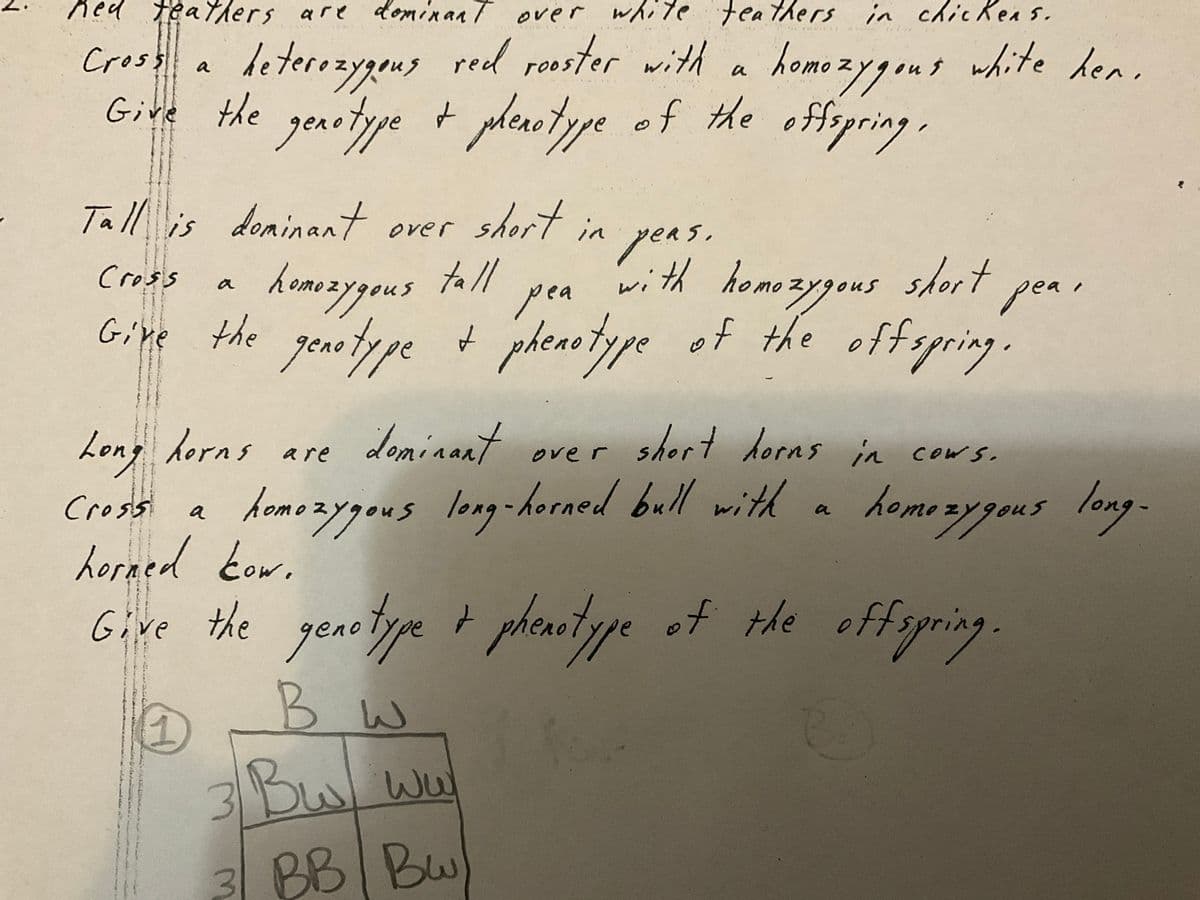 2. Red feathers are dominant over white feathers in chickens.
Cross a heterozygous red rooster with a homozygous white hen.
Give the genotype & phenotype of the offspring.
Tall is dominant over short in peas.
Cross a homozygous tall pea with homozygous short pea.
Give the genotype & phenotype of the offspring.
Long horns are dominant over short horns in cows.
Cross a homozygous long-horned bull with a homozygous long-
horned cow.
Give the genotype & phenotype of the offspring.
1 B W
3 Bw ww
3 BB Bw